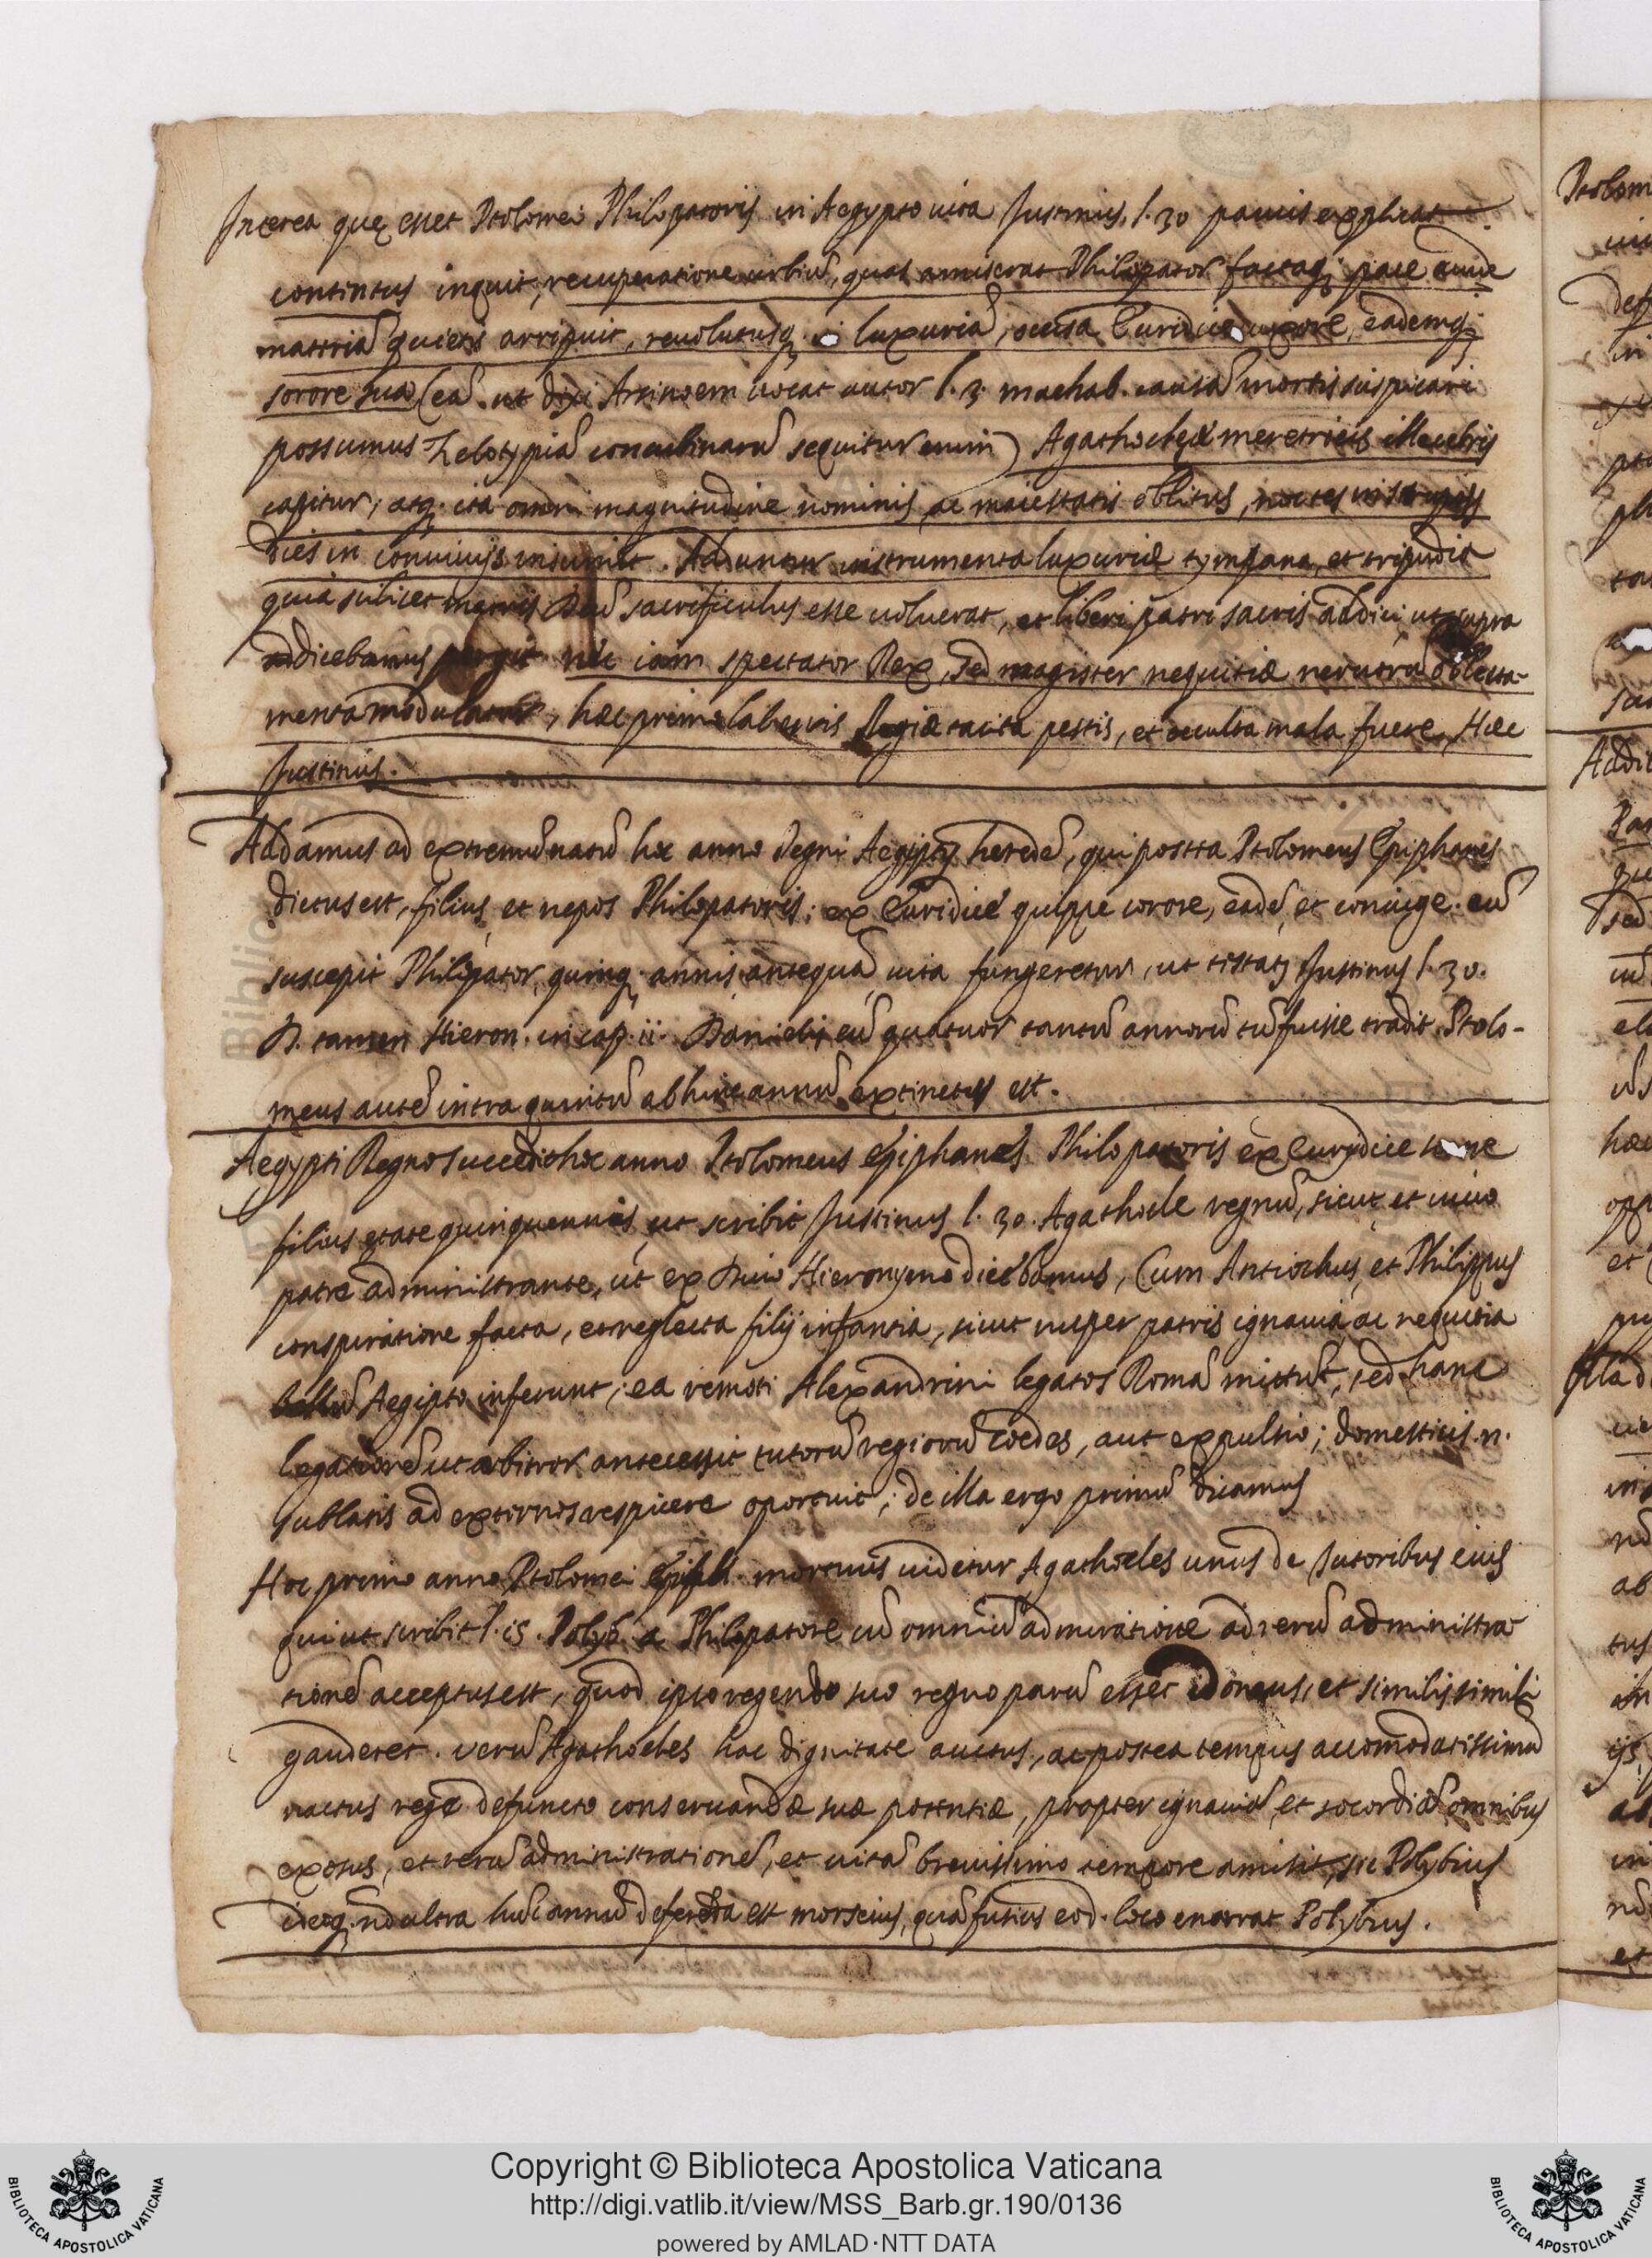 Interea quę esset Ptolomei Philopatoris in Aegypto uita Justinus l. 30 paucis explicat
contentus inquit, recuperatione urbiũ, quas amiserat Philopator factaq; pace auide
materiã quietis arripuit, reuolutusq; luxuriã, occisa Euridice uxore, eademq;
sorore sua (eã ut dixi Arsinoem uocat autor l. 3. machab. causã mortis suspicari
possumus Zelotypiã concubinarũ sequitur enim) Agathocleæ meretricis illecebris
capitur; atq; ita omni magnitudine nominis, ac maiestatis oblitus, noctes in stupris
dies in conuiuijs insumit. Adduntur instrumenta luxuriæ tympana, et tripudia
quia scilicet matris Deũ sacrificulus esse uoluerat, et liberi patri sacris addici, ut supra
dicebamus nec iam spectator Rex, sed magister nequitiæ neruorũ oblecta-
menta modulatur, hæc primo laboris Regiæ tacita pestis, et occulta mala fuere, Hæc
Justinus.
Addamus ad extremũ natũ hoc anno Regni Aegypty heredẽ, qui postea Ptolomeus Epiphanes
dictus est, filius, et nepos Philopatoris; ex Euridice quippe sorore, eadẽ, et coniuge. eũ
suscepit Philopator, quinq; annis antequã uita fungeretur, ut testatʒ Justinus l. 30.
D. tamen Hieron. in cap. ii. Danielis eũ quatuor tantũ annorũ tũ fuisse tradit. Ptolo-
meus autẽ intra quintũ abhinc annũ extinctus est.
Aegypti Regno succedit hoc anno Ptolomeus Epiphanes Philopatoris ex Eurydice
filius ętate quinquennis, ut scribit Justinus l. 30. Agathocle regnũ, sicut et uiuo
patre administrante, ut ex Diuo Hieronymo dicebamus, Cum Antiochus, et Philippus
conspiratione facta, et neglecta filij infantia, sicut nuper patris ignauia, ac nequitia
bellũ Aegipto inferunt; ea remoti Alexandrini legatos Romã mittũt, sed hanc
legationẽ ut arbitror antecessit tutorũ regiorũ cœdes, aut expulsio; domesticis .n.
sublatis ad externos respicere oportuit; de illa ergo primũ dicamus
Hoc primo anno Ptolomei Epiph. mortuus uidetur Agathocles unus de Tutoribus eius
qui ut scribit l. 15. Polyb. a Philopatore cũ omniũ admiratione ad rerũ administra-
tionẽ acceptus est, quod ipso regendo suo regno parũ esset idoneus, et similis simili
gauderet. uerũ Agathocles hac dignitate auctus, ac postea tempus accomodatissimũ
nactus rege defuncto conseruandæ suæ potentiæ, propter ignauiã, et socordiã omnibus
exosus, et rerũ administrationẽ, et uitã breuissimo tempore amisit, sic Polybius
ideoq; nõ ultra hũc annũ deferẽda est mors eius, quã fusius eod. loco enarrat Polybius.
Copyright © Biblioteca Apostolica Vaticana
http://digi.vatlib.it/view/MSS_Barb.gr.190/0136
powered by AMLAD·NTT DATA
BIBLIOTECA APOSTOLICA VATICANA
BIBLIOTECA APOSTOLICA VATICANA